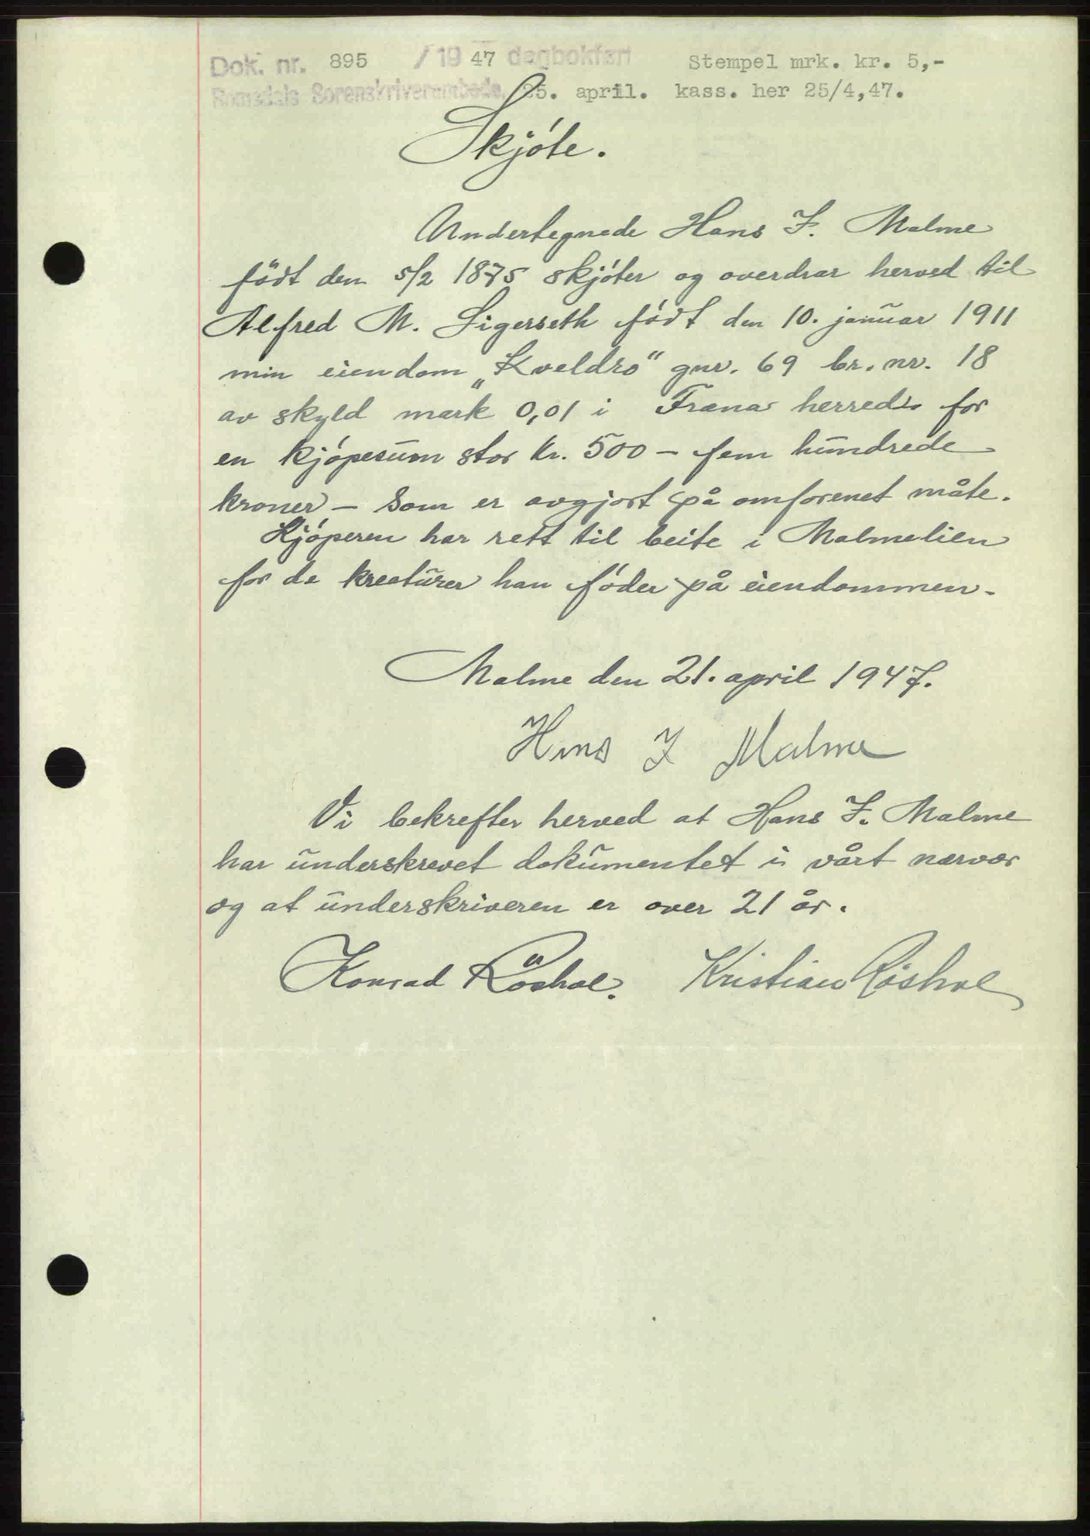 Dok. nr. 895 / 19 47 dagbokført Stempel mrk. kr. 5,-
Romsdals Sorenskriverembede, 25. april. kass. her 25/4,47.
Skjóte.
Undertegnede Hans F. Malme
födt den 5/2 1875 skjóter og overdrar herved til
Alfred M. Sigerseth födt den 10. januar 1911
min eiendom „Kveldro" gnr. 69 br. nr. 18
av skyld mark 0,01 i Fræna herred. for
en kjópesum stor kr. 500 – fem hundrede
kroner – som er avgjort på omforenet måte.
Kjóperen har rett til beite i Malmelien
for de kreaturer han föder på eiendommen.
Malme den 21. april 1947.
Hans F Malme
Vi bekrefter herved at Hans F. Malme
har underskrevet dokumentet i vårt nærvær
og at underskriveren er over 21 år.
Konrad Röshol. Kristian Röshol